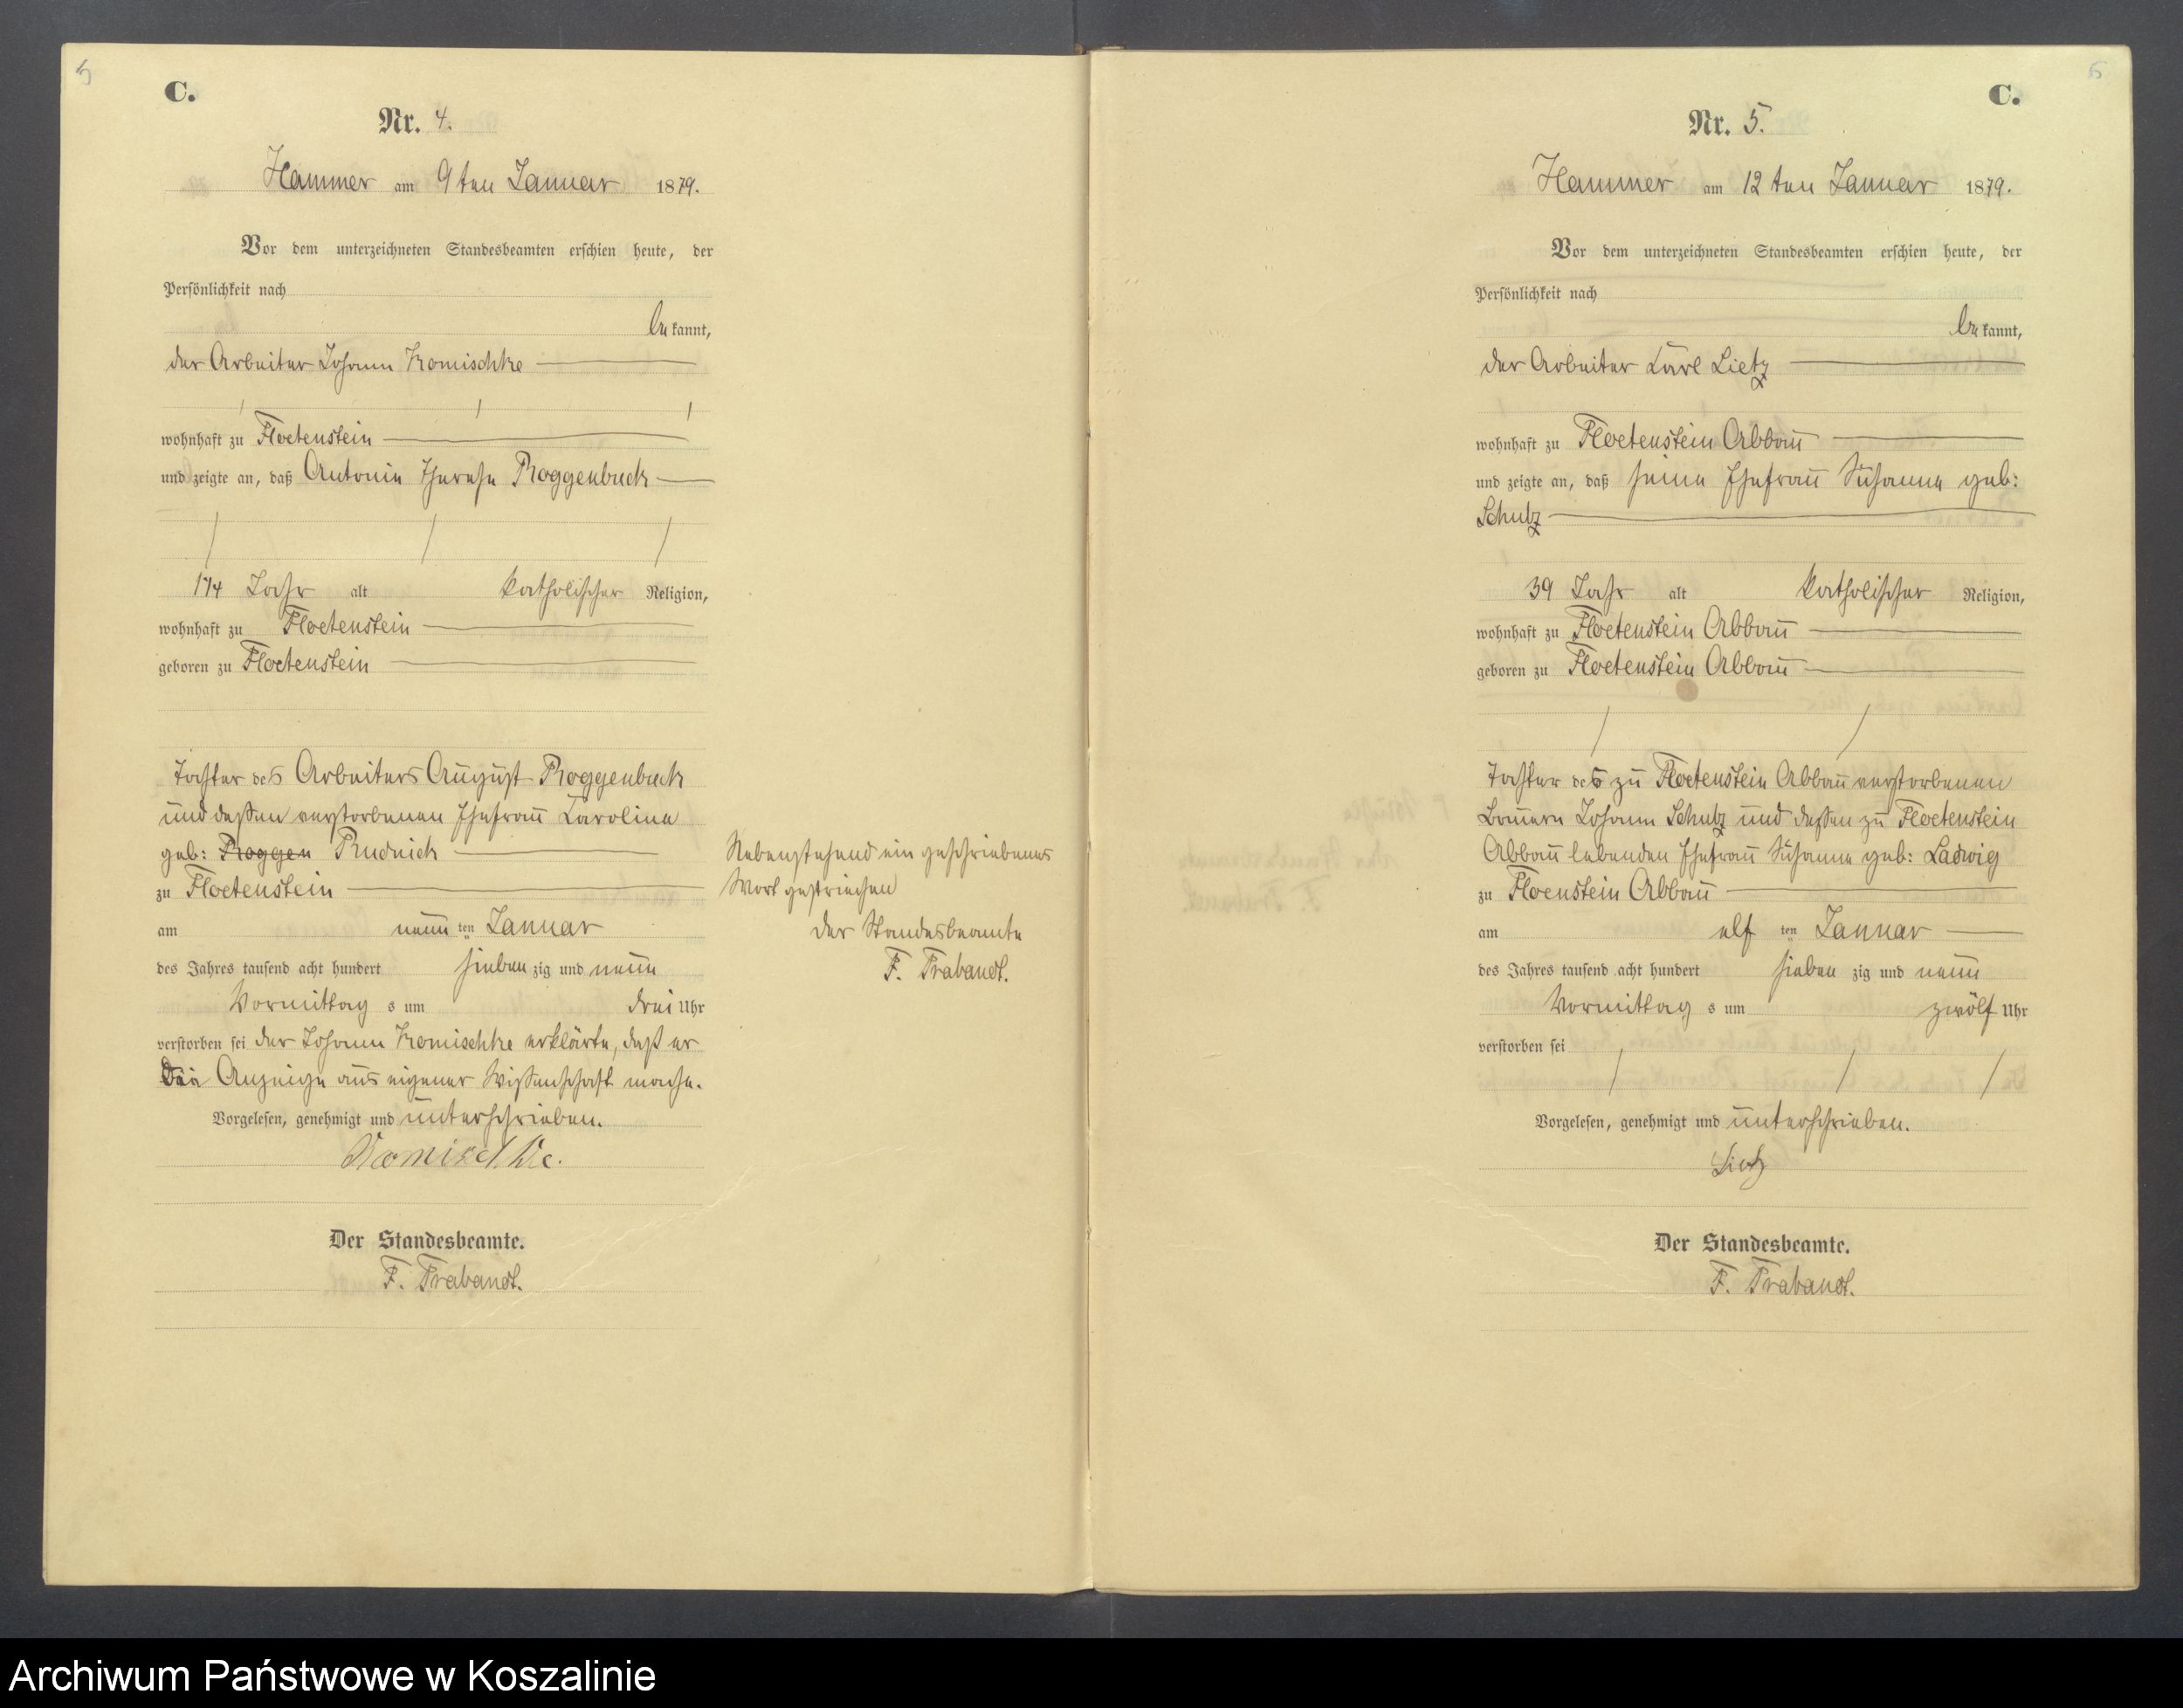 5
C.
Nr. 4.
Hammer am 9ten Januar 1879.
Vor dem unterzeichneten Standesbeamten erschien heute, der
Persönlichkeit nach
be kannt,
der Arbeiter Johann Komischke
wohnhaft zu Floetenstein
und zeigte an, daß Antonie Therese Roggenbuck
1 1/4 Jahr alt katholischer Religion,
wohnhaft zu Floetenstein
geboren zu Floetenstein
Tochter des Arbeiters August Roggenbuck
und deßen verstorbenen Ehefrau Caroline
geb: Roggen Rudnick
zu Floetenstein
am neun ten Januar
des Jahres tausend acht hundert sieben zig und neun
Vormittag s um drei Uhr
verstorben sei der Johann Komischke erklärte, daß er
die Anzeige aus eigener Wißenschaft mache.
Vorgelesen, genehmigt und unterschrieben.
Komischke.
Der Standesbeamte.
F. Trabandt.
Nebenstehend ein geschriebenes
Wort gestrichen
Der Standesbeamte
F. Trabandt.
6
C.
Nr. 5.
Hammer am 12 ten Januar 1879.
Vor dem unterzeichneten Standesbeamten erschien heute, der
Persönlichkeit nach
be kannt,
der Arbeiter Carl Lietz
wohnhaft zu Floetenstein Abbau
und zeigte an, daß seine Ehefrau Susanne geb:
Schulz
39 Jahr alt katholischer Religion,
wohnhaft zu Floetenstein Abbau
geboren zu Floetenstein Abbau
Tochter des zu Floetenstein Abbau verstorbenen
Bauern Johann Schulz und deßen zu Floetenstein
Abbau lebenden Ehefrau Susanne geb: Ladwig
zu Floenstein Abbau
am elf ten Januar
des Jahres tausend acht hundert sieben zig und neun
Vormittag s um zwölf Uhr
verstorben sei
Vorgelesen, genehmigt und unterschrieben.
Lietz
Der Standesbeamte.
F. Trabandt.
Archiwum Państwowe w Koszalinie